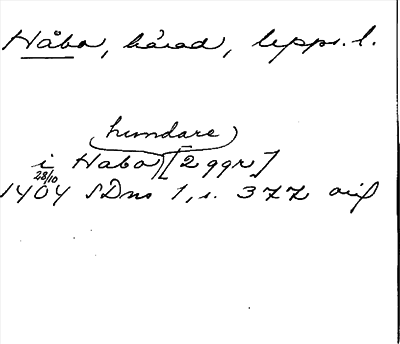 Håbo, härad, Upps. l.
hundare
i Habo [2 ggr]
28/10
1404 SDns 1, s. 377 orig